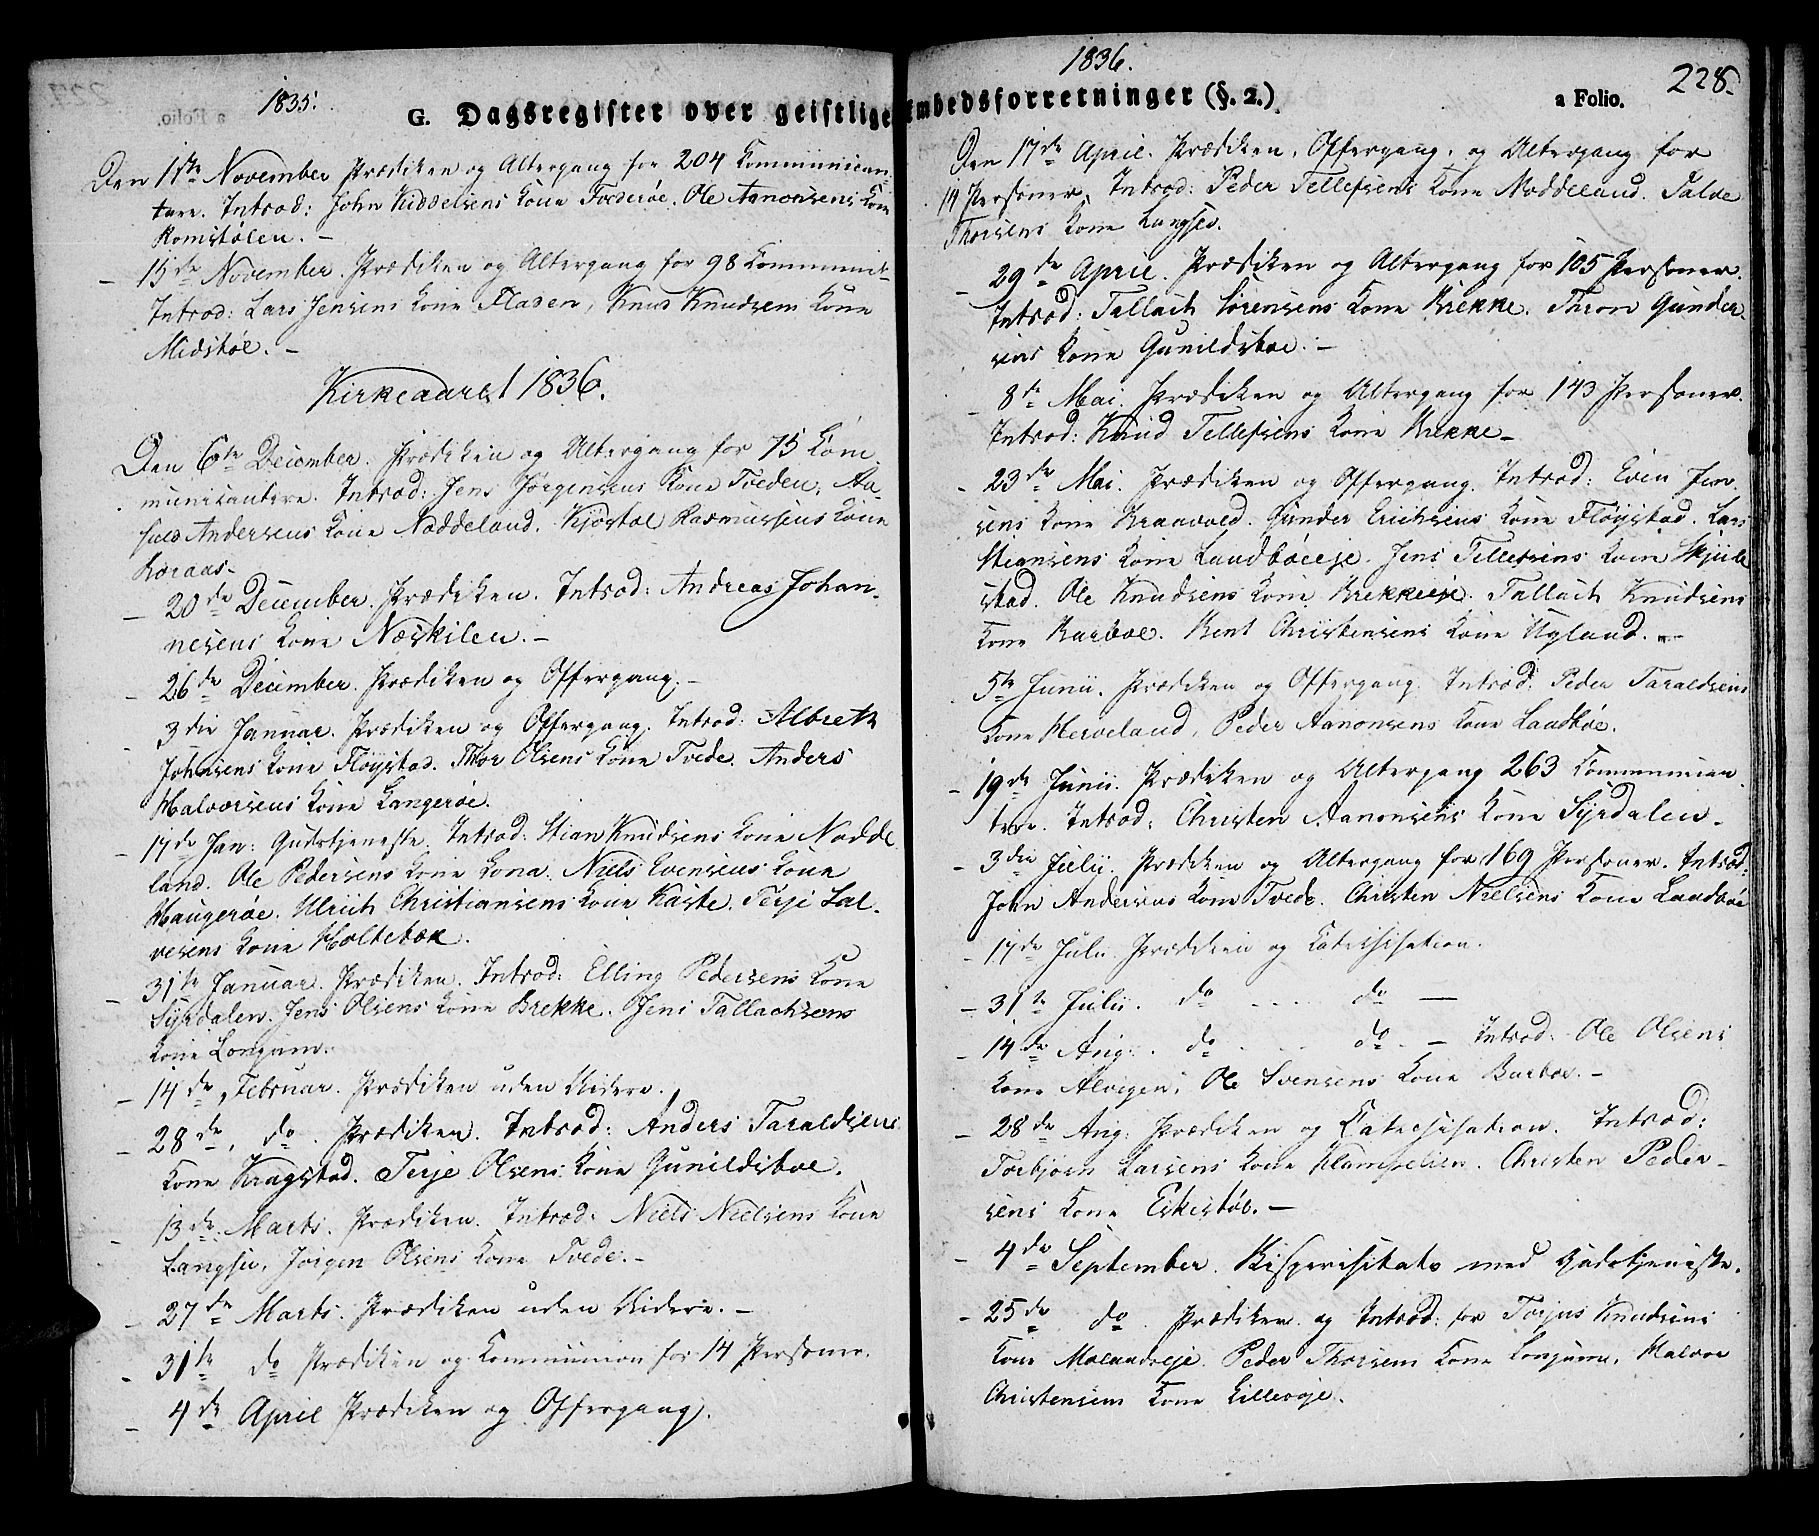 1835.
G. Dagsregister over geistlige
Den 1ste November Prædiken og Altergang for 204 Communican-
tere. Introd: John Kiddelsens Kone Foderøe. Ole Aanonsens Kone
Romstølen. –
– 15de November. Prædiken og Altergang for 98 Communik
Introd: Lars Jensens Kone Fladen, Knud Knudsens Kone
Midtbøe. –
Kirkeaaret 1836.
Den 6te December. Prædiken og Altergang for 75 Com-
municantere. Introd: Jens Jørgensens Kone Tveden, Aa-
Andersens Kone Noddeland. Kjøstol Rasmussens Kone
Boraas-
– 20de December. Prædiken. Introd: Andreas Johan-
nesens Kone Næskilen. –
– 26de December. Prædiken og Offergang. –
– 3die Januar. Prædiken og Offergang. Introd: Albreth
Johnsens Kone Fløystad. Thor Olsens Kone Tvede. Anders
Halvorsens Kone Langerøe.
– 17de Jan: Gudstjeneste. Introd: Stian Knudsens Kone Nodde
land. Ole Pedersens Kone Lona. Niels Evensens Kone
Haugerøe. Ulrich Christiansens Kone Kaste. Terje Sal-
vesens Kone Holtebæk.
– 31te Januar. Prædiken. Introd: Elling Pedersens Kone
Syrdalen. Jens Olsens Kone Brekke. Jens Tallachsens
Kone Longum.
– 14de Februar. Prædiken uden Videre.
– 28de, do. Prædiken. Introd: Anders Taraldsens
Kone Kragstad. Terje Olsens Kone Gunildsboe.
– 13de Marts. Prædiken. Introd: Niels Nielsens Kone
Langsev, Jørgen Olsens Kone Tvede. –
– 27de Marts. Prædiken uden Videre. –
– 31te do Prædiken og Communion for 14 Personer.
– 4de April Prædiken og Offergang.
1836.
228.
Embedsforretninger (§. 2.)
a Folio.
Den 17de April. Prædiken, Offergang, og Altergang for
14 Personer. Introd: Peder Tellefsens Kone Noddeland. Salve
Thorsens Kone Langsev.
– 29de April. Prædiken og Altergang for 105 Personer.
Introd: Tallach Sørensens Kone Brekke. Thron Gunder-
sens Kone Gunildsboe. –
– 8de Mai. Prædiken og Altergang for 143 Personer.
Introd: Knud Tellefsens Kone Brekke –
– 23de Mai. Prædiken og Offergang. Introd: Even Jen-
sens Kone Branvold. Gunder Erichsens Kone Fløystad. Lars
Stiansens Kone Landbøeeje. Jens Tellefsens Kone Skjule
stad. Ole Knudsens Kone Brekkeeje. Tallach Knudsens
Kone Barboe. Bent Christensens Kone Ugland. –
5te Junii. Prædiken og Offergang. Introd: Peder Taraldsens
Kone Herveland, Peder Aanonsens Kone Landbøe.
– 19de Junii. Prædiken og Altergang 263 Communican
tere. Introd: Christen Aanonsens Kone Syrdalen.
– 3die Julii. Prædiken og Altergang for 169 Personer. Introd:
John Andersens Kone Tvede. Christen Nielsens Kone Landbøe
– 17de Juli Prædiken og Catechisation.
– 31te Julii. do .... do –
– 14de Aug: . do .... do . – Introd: Ole Olsens
Kone Alvigen, Ole Svensens Kone Barboe. –
– 28de Aug: Prædiken og Catechisation. Introd:
Torbjørn Larsens Kone Klampelien. Christen Peder-
sens Kone Eskistøb. –
– 4de September. Bispevisitats med Gudstjeneste.
– 25de do. Prædiken og Introd: for Torjus Knudsens
Kone Molandseje. Peder Thorsens Kone Longum. Halvor
Christensens Kone Lillevoje.